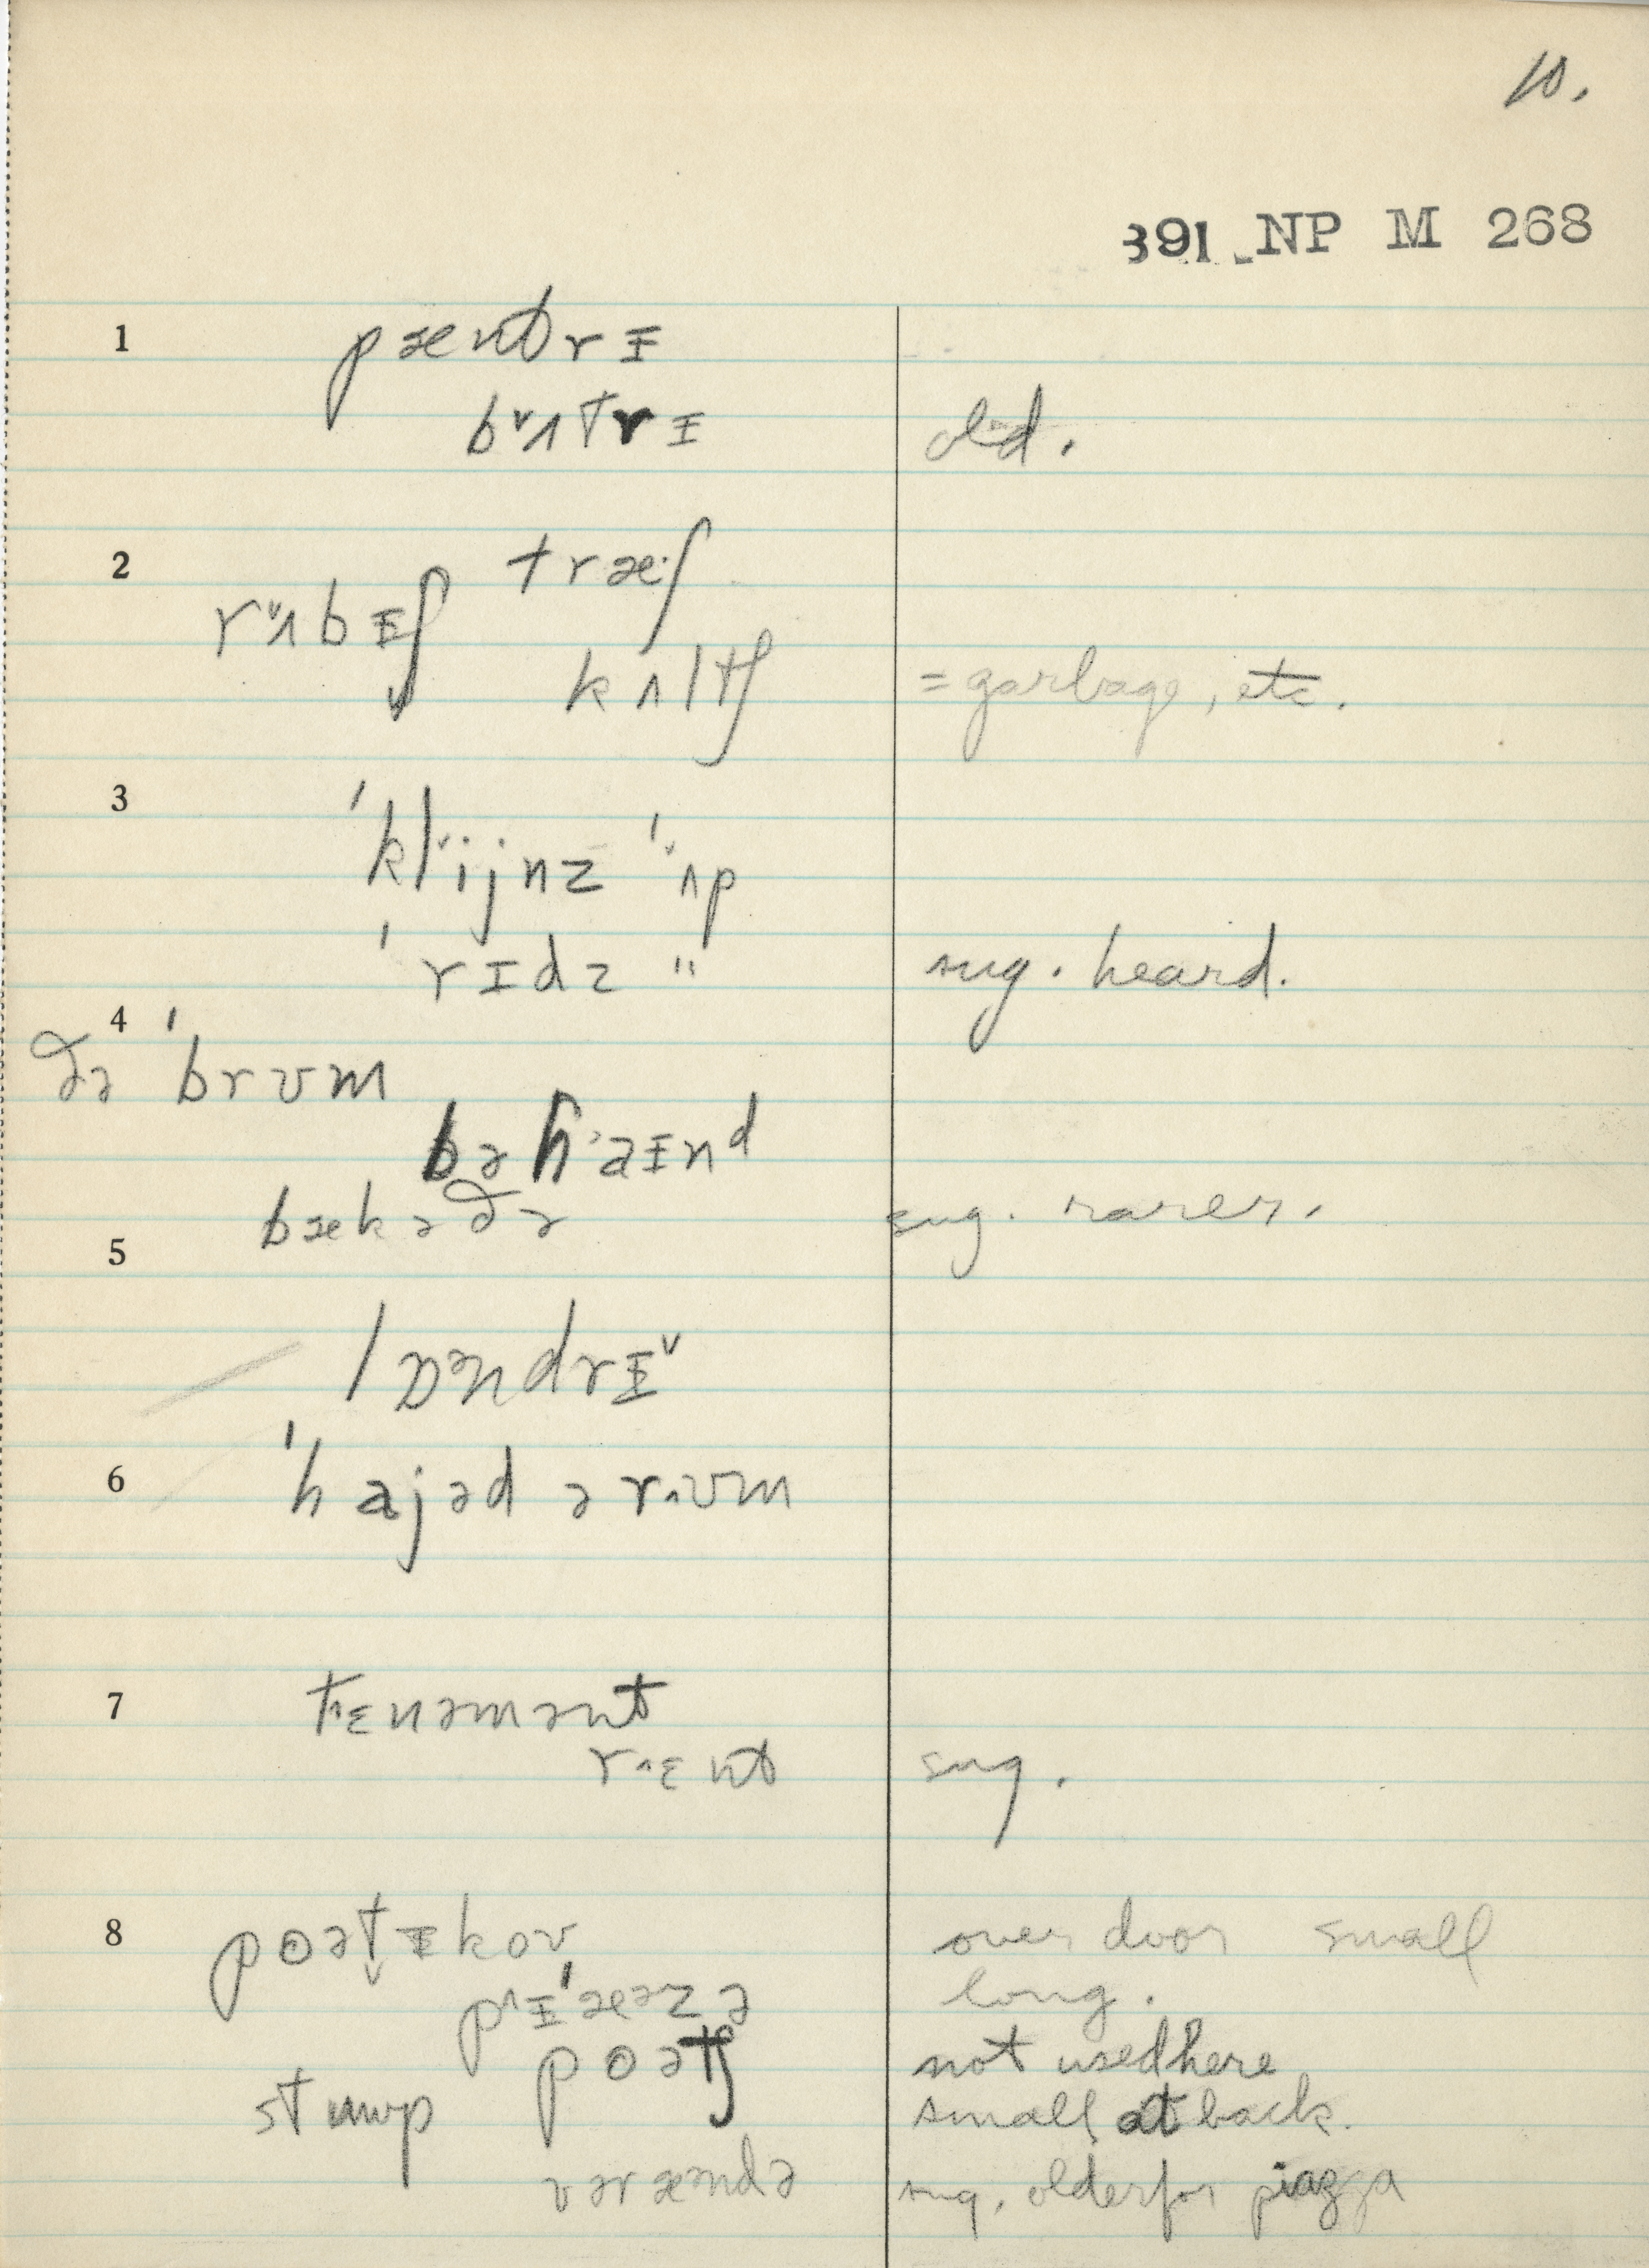 10.
391 NP M 268
1 pæntrɪ
bˇʌtrɪ old.
2 træ·ʃ
rˇʌbɪʃ
kʌltʃ = garbage, etc.
3 'klˇijnz 'ˇʌp
'rɪdz " sug. heard.
4
ðə 'brʊm
bəhˈaɪnᵈ
bækəðə sug. rarer.
5
lɒᵊndrɪˇ
6 'hajəd ə r^ʊm
7 t^ɛnəmənt
r^ɛnt sug.
8 pɵətɪkoʊ over door small
p^ɪ'æᵊzə long.
pɵətʃ not used here
stʌmp small at back.
vəræᵊndə sug. older for piazza